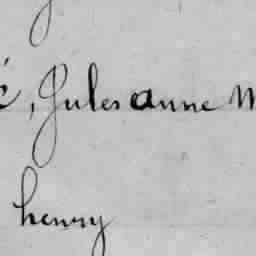 , Jules anne M
henry